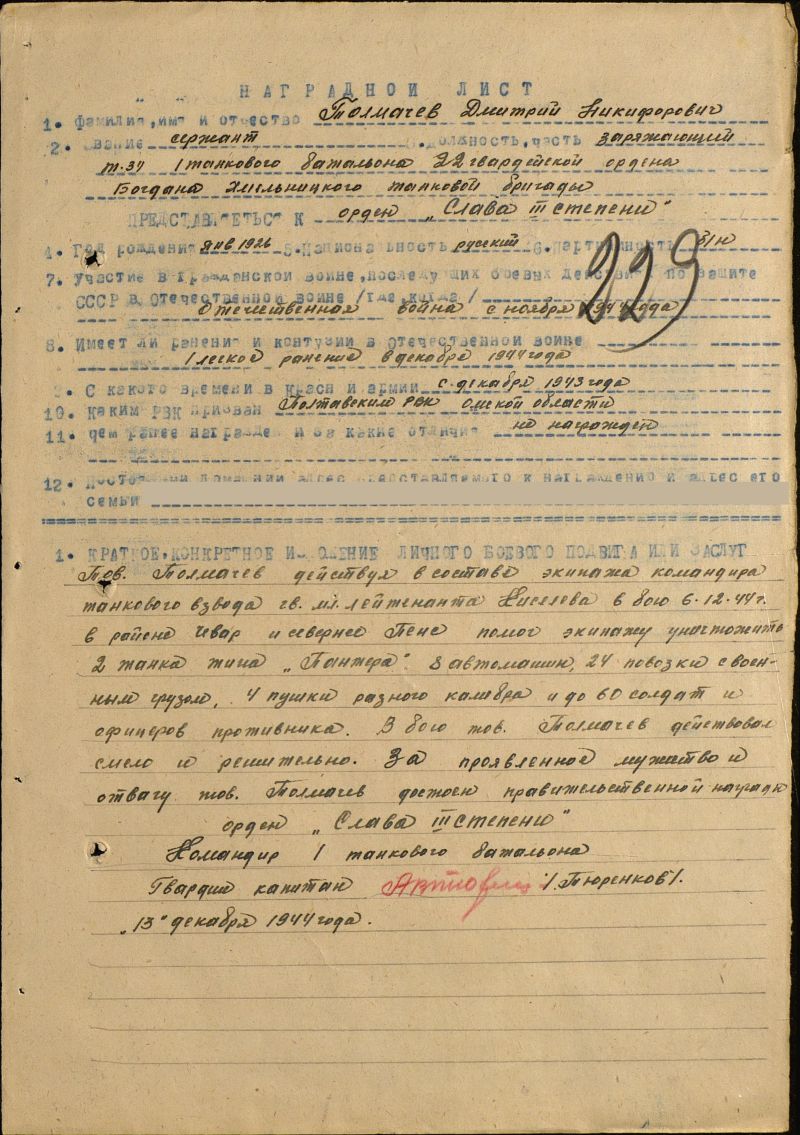 НАГРАДНОЙ ЛИСТ
1. Фамилия, имя и отчество Толмачев Дмитрий Никифорович
2. Звание сержант 3. Должность, часть заряжающий
т-34 1 танкового батальона 22 гвардейской ордена
Богдана Хмельницкого танковой бригады
ПРЕДСТАВИТЬСЯ К орден „Слава III степени"
4. Год рождения янв 1926 5. Национальность русский 6. Партийность б/п
7. Участие в гражданской войне, последующих боевых действиях по защите
СССР в Отечественной войне /где, когда/
Отечественная война с ноября 1944 года
229
8. Имеет ли ранения и контузии в Отечественной войне
1 легкое ранение в декабре 1944 года
9. С какого времени в Красной армии с декабря 1943 года
10. Каким РВК призван Полтавским РВК Омской области
11. Чем ранее награжден и за какие отличия не награжден
12. Постоянный домашний адрес представляемого к награждению и адрес его
семьи
1. КРАТКОЕ, КОНКРЕТНОЕ ИЗЛОЖЕНИЕ ЛИЧНОГО БОЕВОГО ПОДВИГА ИЛИ ЗАСЛУГ
Тов. Толмачев действуя в составе экипажа командира
танкового взвода гв. мл. лейтенанта Киселева в бою 6.12.44г.
в районе Чевар и севернее Пене помог экипажу уничтожить
2 танка типа „Пантера". 8 автомашин, 24 повозки с воен-
ным грузом, 4 пушки разного калибра и до 60 солдат и
офицеров противника. В бою тов. Толмачев действовал
смело и решительно. За проявленное мужество и
отвагу тов. Толмачев достоен правительственной награды
орден „Слава III степени"
Командир 1 танкового батальона
Гвардии капитан /Тюренков/.
„13" декабря 1944 года.